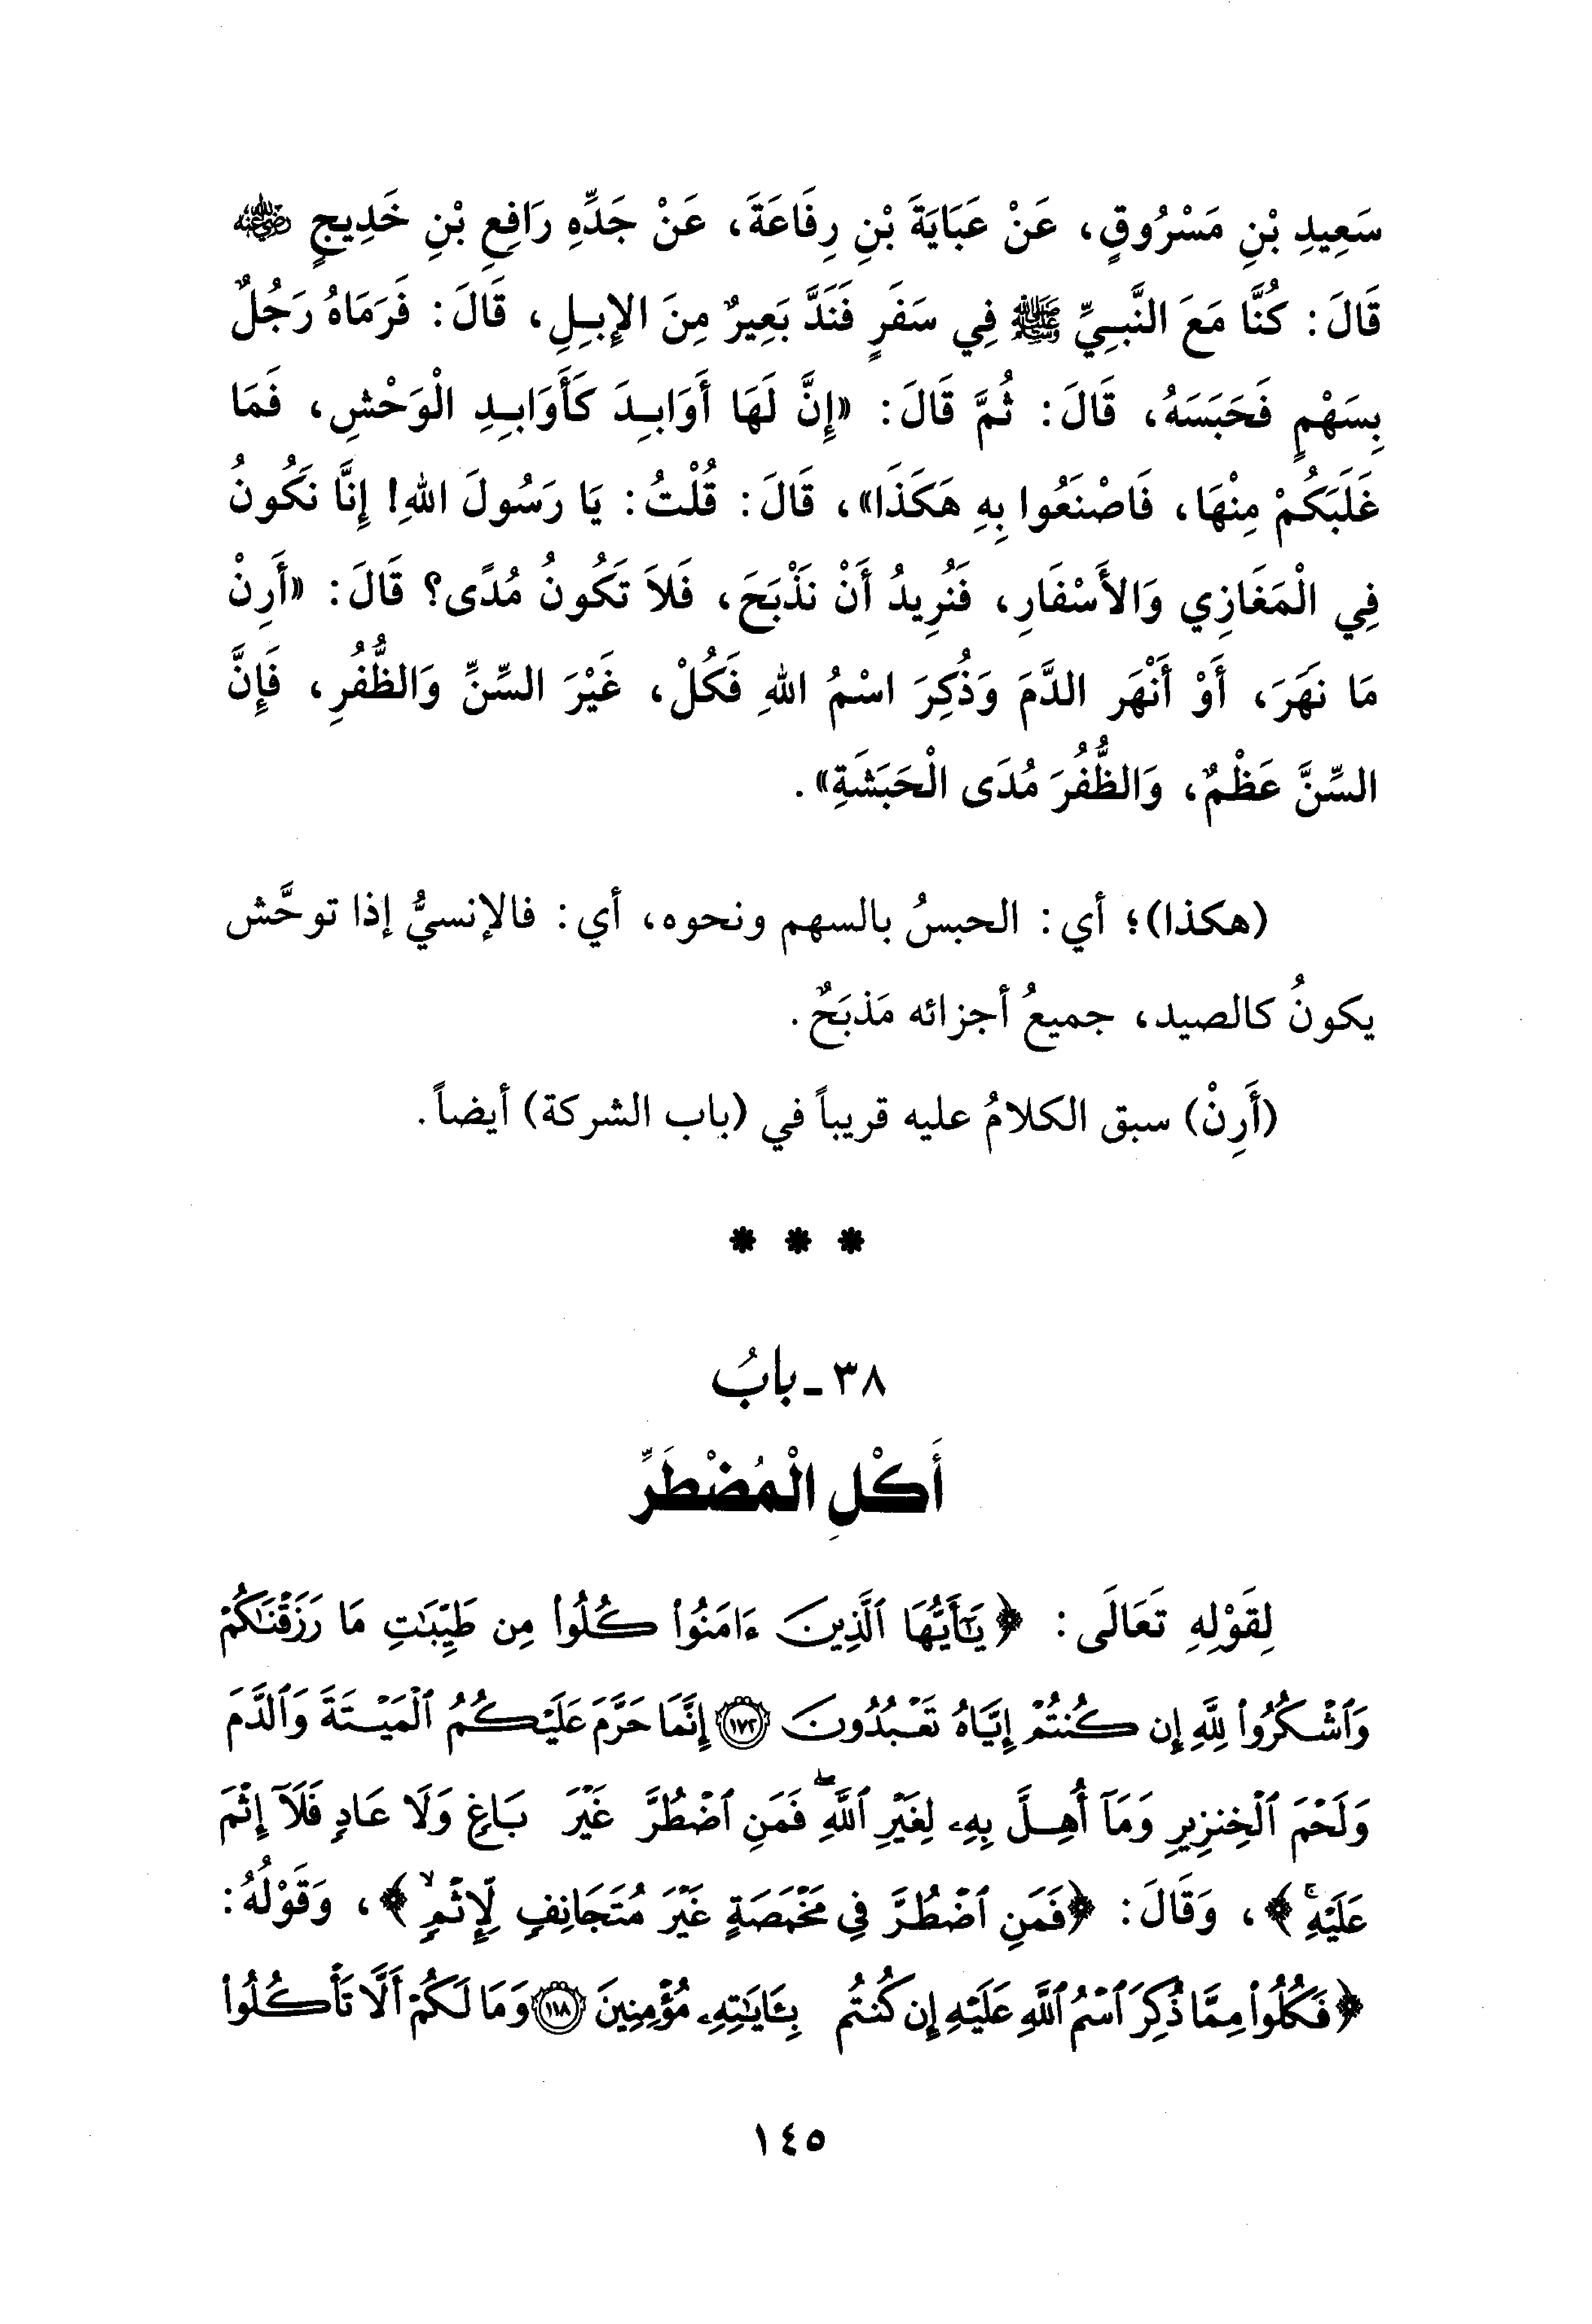 سَعِيدِ بْنِ مَسْرُوقٍ، عَنْ عَبَايَةَ بْنِ رِفَاعَةَ، عَنْ جَدِّهِ رَافِعِ بْنِ خَدِيجٍ رضي الله عنه
قَالَ: كُنَّا مَعَ النَّبِيِّ ﷺ فِي سَفَرٍ فَنَدَّ بَعِيرٌ مِنَ الإِبِلِ، قَالَ: فَرَمَاهُ رَجُلٌ
بِسَهْمٍ فَحَبَسَهُ، قَالَ: ثُمَّ قَالَ: «إِنَّ لَهَا أَوَابِدَ كَأَوَابِدِ الْوَحْشِ، فَمَا
غَلَبَكُمْ مِنْهَا، فَاصْنَعُوا بِهِ هَكَذَا»، قَالَ: قُلْتُ: يَا رَسُولَ اللهِ! إِنَّا نَكُونُ
فِي الْمَغَازِي وَالأَسْفَارِ، فَنُرِيدُ أَنْ نَذْبَحَ، فَلاَ تَكُونُ مُدًى؟ قَالَ: «أَرِنْ
مَا نَهَرَ، أَوْ أَنْهَر الدَّمَ وَذُكِرَ اسْمُ اللهِ فَكُلْ، غَيْرَ السِّنِّ وَالظُّفُرِ، فَإِنَّ
السِّنَّ عَظْمٌ، وَالظُّفُرَ مُدَى الْحَبَشَةِ».
(هكذا)؛ أي: الحبسُ بالسهم ونحوه، أي: فالإنسيُّ إذا توحَّش
يكونُ كالصيد، جميعُ أجزائه مَذبَحٌ.
(أَرِنْ) سبق الكلامُ عليه قريباً في (باب الشركة) أيضاً.
* * *
٣٨ - بابُ
أَكْلِ الْمُضْطَرِّ
لِقَوْلِهِ تَعَالَى: ﴿يَٰٓأَيُّهَا ٱلَّذِينَ ءَامَنُوا۟ كُلُوا۟ مِن طَيِّبَٰتِ مَا رَزَقْنَٰكُمْ
وَٱشْكُرُوا۟ لِلَّهِ إِن كُنتُمْ إِيَّاهُ تَعْبُدُونَ ١٧٢ إِنَّمَا حَرَّمَ عَلَيْكُمُ ٱلْمَيْتَةَ وَٱلدَّمَ
وَلَحْمَ ٱلْخِنزِيرِ وَمَآ أُهِلَّ بِهِۦ لِغَيْرِ ٱللَّهِ ۖ فَمَنِ ٱضْطُرَّ غَيْرَ بَاغٍ وَلَا عَادٍ فَلَآ إِثْمَ
عَلَيْهِ ۚ﴾، وَقَالَ: ﴿فَمَنِ ٱضْطُرَّ فِى مَخْمَصَةٍ غَيْرَ مُتَجَانِفٍ لِّإِثْمٍ ۙ﴾، وَقَوْلُهُ:
﴿فَكُلُوا۟ مِمَّا ذُكِرَ ٱسْمُ ٱللَّهِ عَلَيْهِ إِن كُنتُم بِـَٔايَٰتِهِۦ مُؤْمِنِينَ ١١٨ وَمَا لَكُمْ أَلَّا تَأْكُلُوا۟
١٤٥